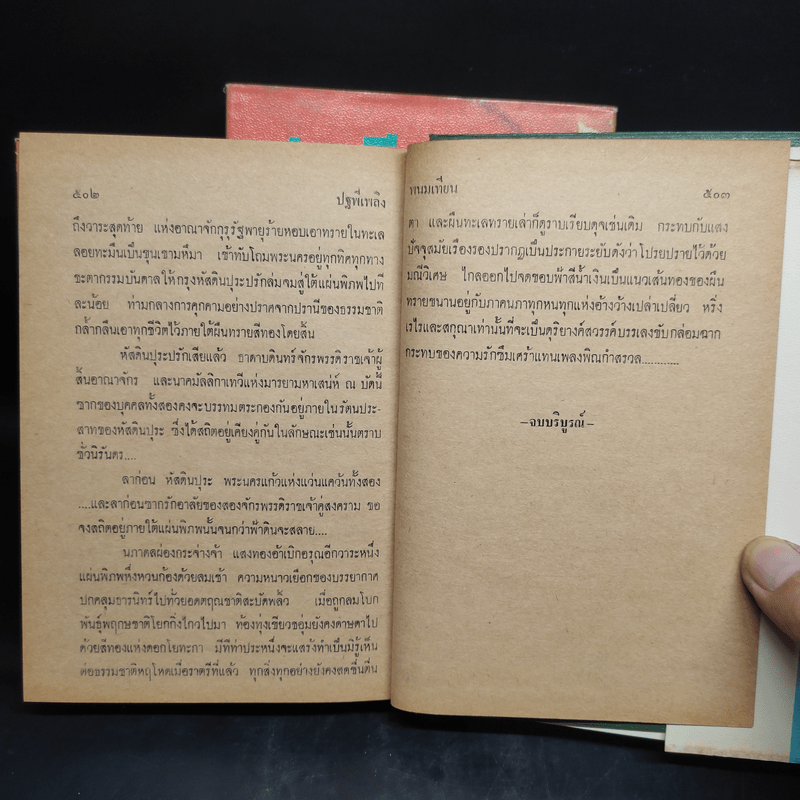 ๕๐๒
ปฐพีเพลิง
ถึงวาระสุดท้าย แห่งอาณาจักกุรุรัฐพายุร้ายหอบเอาทรายในทะเล
ลอยทะมึนเป็นขุนเขามหึมา เข้าทับโถมพระนครอยู่ทุกทิศทุกทาง
ชะตากรรมบันดาลให้กรุงหัสดินปุระปรักล่มจมสู่ใต้แผ่นพิภพไปที
ละน้อย ท่ามกลางการคุกคามอย่างปราศจากปรานีของธรรมชาติ
กล้ำกลืนเอาทุกชีวิตไว้ภายใต้ผืนทรายสีทองโดยสิ้น
หัสดินปุระปรักเสียแล้ว ธาดาบดินทร์จักรพรรดิราชเจ้าผู้
สิ้นอาณาจักร และนาคมัลลิกาเทวีแห่งมารยามหาเสน่ห์ ณ บัดนี้
ซากของบุคคลทั้งสองคงจะบรรทมตระกองกันอยู่ภายในรัตนประ-
สาทของหัสดินปุระ ซึ่งได้สถิตอยู่เคียงคู่กันในลักษณะเช่นนั้นตราบ
ชั่วนิรันดร....
ลาก่อน หัสดินปุระ พระนครแก้วแห่งแว่นแคว้นทั้งสอง
....และลาก่อนซากรักอาลัยของสองจักรพรรดิราชเจ้าคู่สงคราม ขอ
จงสถิตอยู่ภายใต้แผ่นพิภพนั้นจนกว่าฟ้าดินจะสลาย....
นภาดลผ่องกระจ่างจ้า แสงทองอ้าเบิกอรุณอีกวาระหนึ่ง
แผ่นพิภพหึ่งหวนก้องด้วยลมเช้า ความหนาวเยือกของบรรยากาศ
ปกคลุมธารนิทร์ไปทั่วยอดตฤณชาติสะบัดพลิ้ว เมื่อถูกลมโบก
พันธุ์พฤกษชาติโยกกิ่งไกวไปมา ท้องทุ่งเขียวชอุ่มยังคงดาษดาไป
ด้วยสีทองแห่งดอกโยทะกา มีทีท่าประหนึ่งจะแสร้งทำเป็นมิรู้เห็น
ต่อธรรมชาติหฤโหดเมื่อราตรีที่แล้ว ทุกสิ่งทุกอย่างยังคงสดชื่นตื่น
พนมเทียน
๕๐๓
ตา และผืนทะเลทรายเล่าก็ดูราบเรียบดุจเช่นเดิม กระทบกับแสง
ปัจจุสมัยเรืองรองปรากฏเป็นประกายระยับดังว่าโปรยปรายไว้ด้วย
มณีวิเศษ ไกลออกไปจดขอบฟ้าสีน้ำเงินเป็นแนวเส้นทองของผืน
ทรายขนานอยู่กับภาคนภาทุกหนทุกแห่งอ้างว้างเปล่าเปลี่ยว หริ่ง
เรไรและสกุณาเท่านั้นที่จะเป็นดุริยางค์สวรรค์บรรเลงขับกล่อมฉาก
กระทบของความรักซึมเศร้าแทนเพลงพิณกำสรวล............
—จบบริบูรณ์—